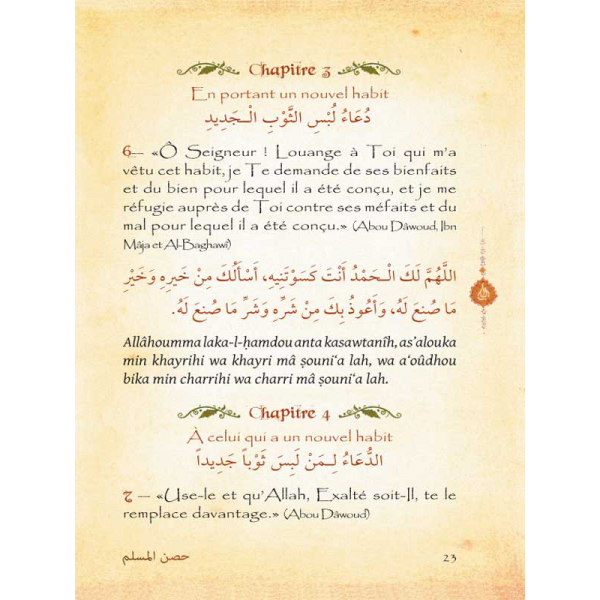 Chapitre 3
En portant un nouvel habit
دُعَاءُ لُبْسِ الثَّوْبِ الْـجَدِيدِ
6– «Ô Seigneur ! Louange à Toi qui m'a
vêtu cet habit, je Te demande de ses bienfaits
et du bien pour lequel il a été conçu, et je me
réfugie auprès de Toi contre ses méfaits et du
mal pour lequel il a été conçu.» (Abou Dâwoud, Ibn
Mâja et Al-Baghawî)
اللَّهُمَّ لَكَ الْـحَمْدُ أَنْتَ كَسَوْتَنِيهِ، أَسْأَلُكَ مِنْ خَيرِهِ وَخَيْرِ
مَا صُنعَ لَهُ، وَأَعُوذُ بِكَ مِنْ شَرِّهِ وَشَرِّ مَا صُنعَ لَهُ.
Allâhoumma laka-l-ḥamdou anta kasawtanîh, as'alouka
min khayrihi wa khayri mâ ṣouni‘a lah, wa a‘oûdhou
bika min charrihi wa charri mâ ṣouni‘a lah.
Chapitre 4
À celui qui a un nouvel habit
الدُّعَاءُ لِـمَنْ لَبِسَ ثَوْباً جَدِيداً
7 – «Use-le et qu'Allah, Exalté soit-Il, te le
remplace davantage.» (Abou Dâwoud)
حصن المسلم
23